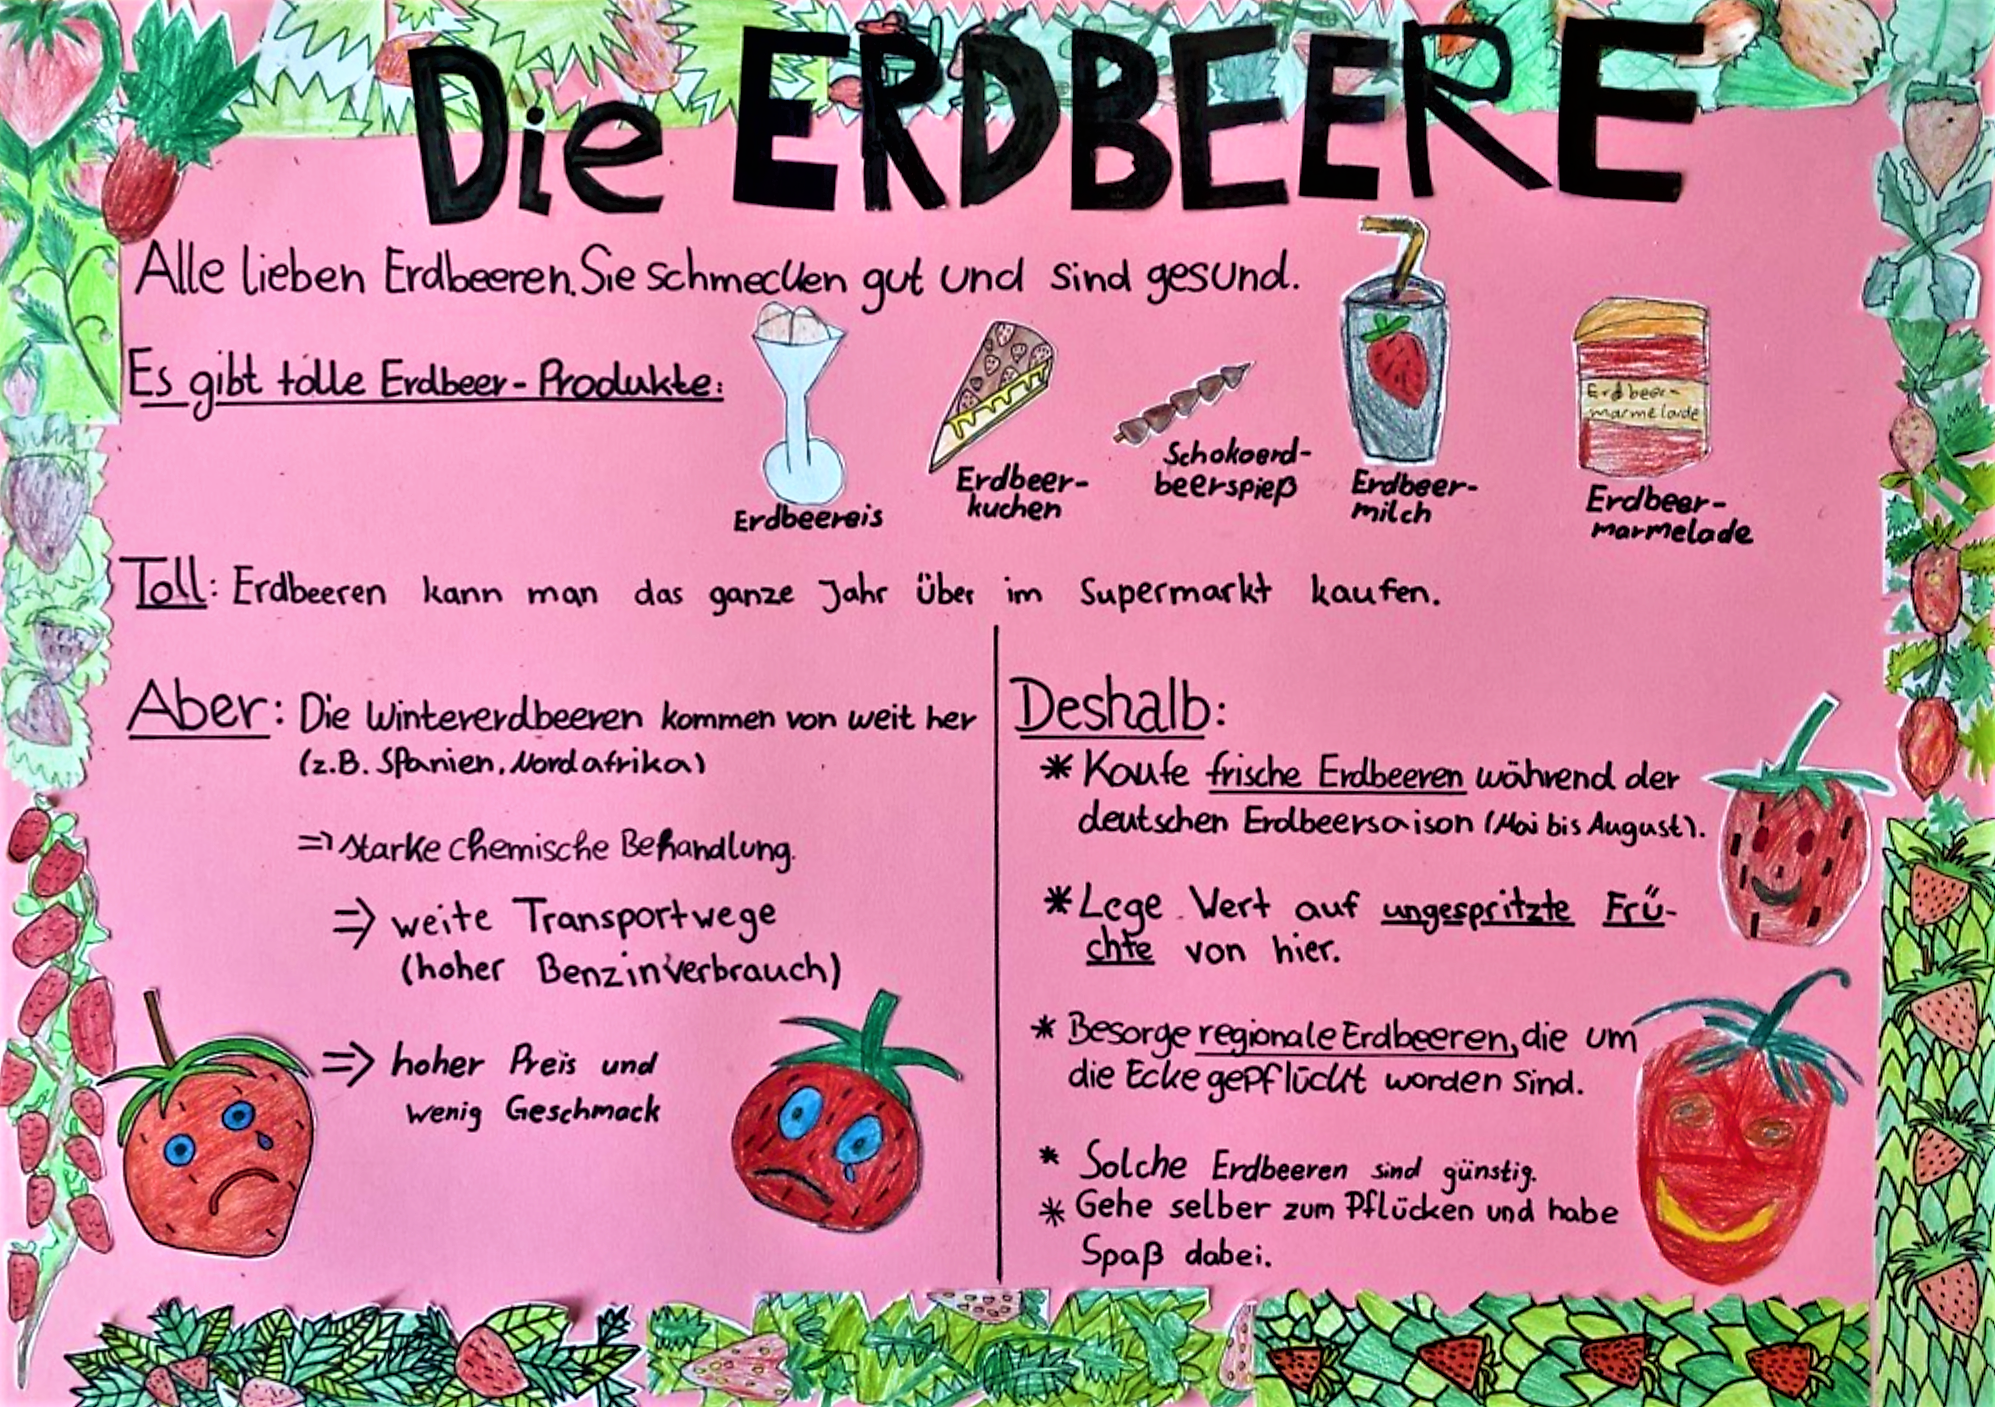 Die ERDBEERE
Alle lieben Erdbeeren. Sie schmecken gut und sind gesund.
Es gibt tolle Erdbeer-Produkte:
Erdbeereis
Erdbeer-
kuchen
Schokoerd-
beerspieß
Erdbeer-
milch
Erdbeer-
marmelade
Erdbeer-
marmelade
Toll: Erdbeeren kann man das ganze Jahr über im Supermarkt kaufen.
Aber: Die Wintererdbeeren kommen von weit her
(z.B. Spanien, Nordafrika)
=> starke chemische Behandlung.
=> weite Transportwege
(hoher Benzinverbrauch)
=> hoher Preis und
wenig Geschmack
Deshalb:
* Kaufe frische Erdbeeren während der
deutschen Erdbeersaison (Mai bis August).
* Lege Wert auf ungespritzte Frü-
chte von hier.
* Besorge regionale Erdbeeren, die um
die Ecke gepflückt worden sind.
* Solche Erdbeeren sind günstig.
* Gehe selber zum Pflücken und habe
Spaß dabei.